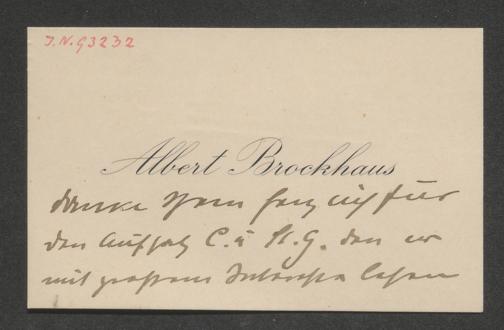 J.N. 93232
Albert Brockhaus
danke Ihnen herzlich für
den Aufsatz C. u St. G. den er
mit großem Interesse lesen